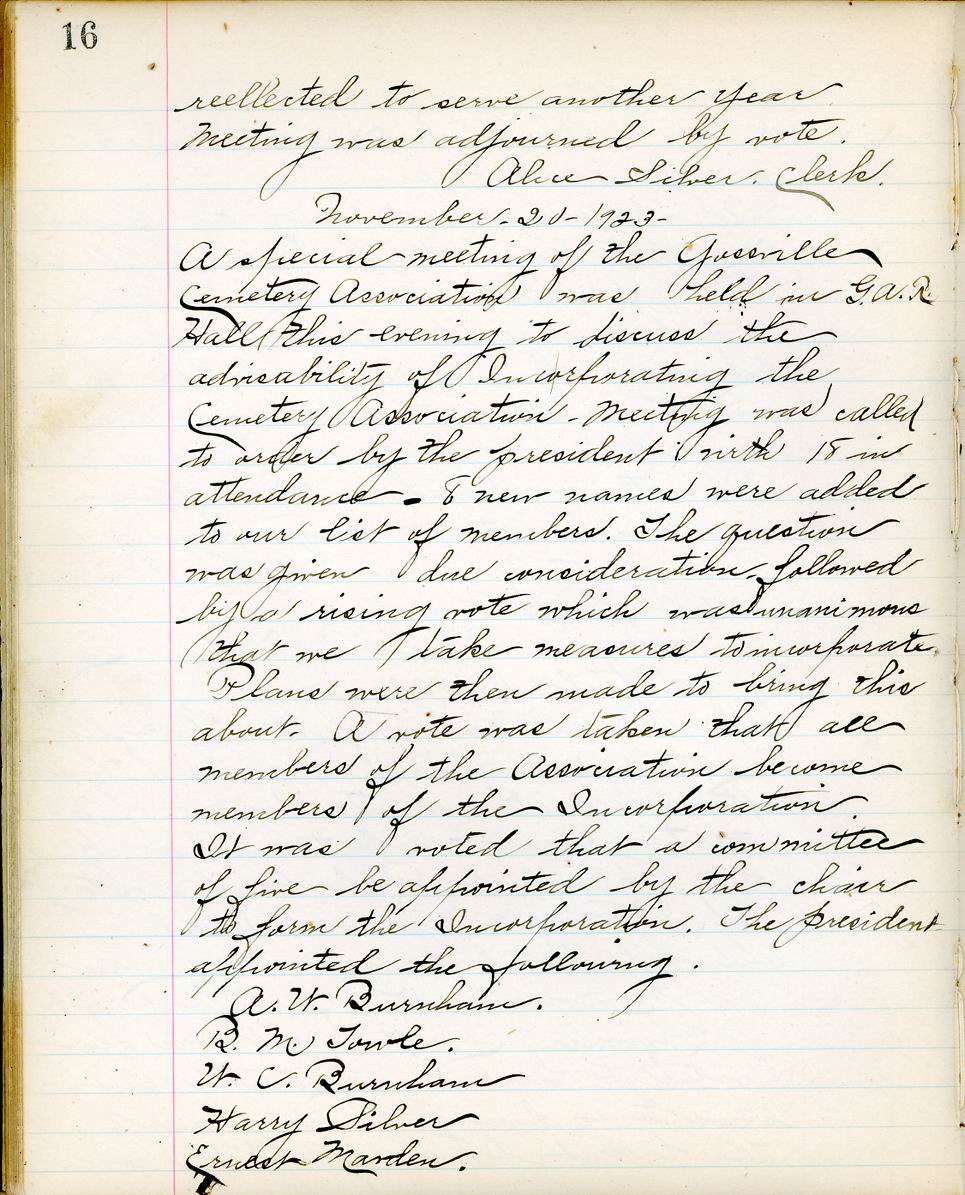 16
reellected to serve another year
Meeting was adjourned by vote.
Alice Silver. Clerk.
November - 20 - 1923 -
A special meeting of the Gossville
Cemetery Association was held in G.A.R.
Hall this evening to discuss the
advisability of Incorporating the
Cemetery Association - Meeting was called
to order by the president with 18 in
attendance - 8 new names were added
to our list of members. The question
was given due consideration followed
by a rising vote which was unanimous
that we take measures to incorporate.
Plans were then made to bring this
about. A vote was taken that all
members of the Association become
members of the Incorporation.
It was voted that a committee
of five be appointed by the chair
to form the Incorporation. The president
appointed the following.
A. W. Burnham.
B. M. Towle.
W. C. Burnham
Harry Silver
Ernest Marden.